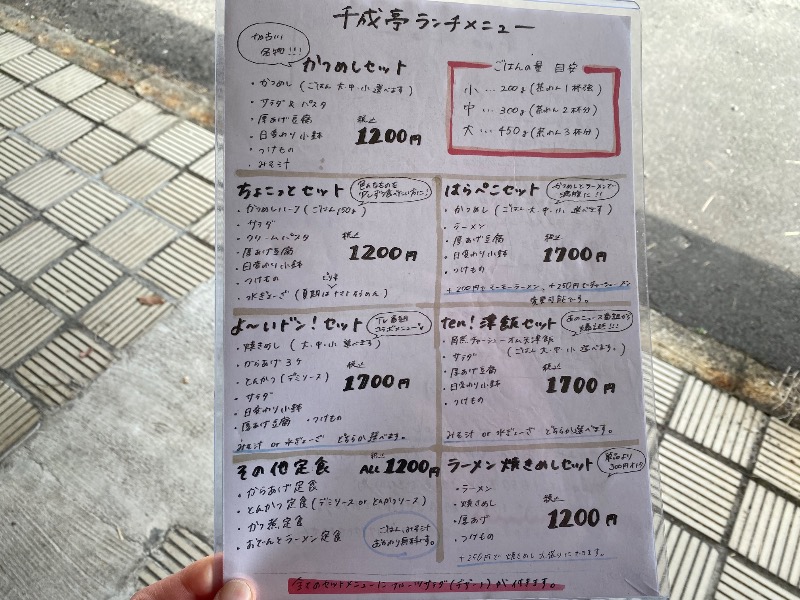 千成亭ランチメニュー
加古川
名物!!!
かつめしセット
・かつめし(ごはん 大、中、小 選べます)
・サラダ&パスタ
・厚あげ豆腐
・日変わり小鉢
・つけもの
・みそ汁
税込
1200円
ごはんの量 目安
小…200g(茶わん1杯強)
中…300g(茶わん2杯分)
大…450g(茶わん3杯分)
ちょこっとセット
色んなものを
少しずつ食べたい方に!
・かつめしハーフ(ごはん150g)
・サラダ
・クリームパスタ
・厚あげ豆腐
・日変わり小鉢
・つけもの
・水ぎょーざ(夏期はトマトそうめん)
税込
1200円
はらぺこセット
かつめしとラーメンで
満腹に!
・かつめし(ごはん 大、中、小 選べます)
・ラーメン
・厚あげ豆腐
・日変わり小鉢
・つけもの
税込
1700円
変更可能です。
よ〜いドン!セット
TV番組
コラボメニュー
・焼きめし(大、中、小 選べます)
・からあげ3ヶ
・とんかつ(デミソース)
・サラダ
・日変わり小鉢
・厚あげ豆腐 ・つけもの
税込
1700円
みそ汁 or 水ぎょーざ どちらか選べます。
ten!津飯セット
あのニュース番組から
爆誕!!!
(ごはん 大、中、小 選べます。)
・サラダ
・厚あげ豆腐
・日変わり小鉢
・つけもの
税込
1700円
みそ汁 or 水ぎょーざ どちらか選べます。
その他定食
税込
ALL 1200円
・からあげ定食
・とんかつ定食(デミソース or とんかつソース)
・かつ煮定食
・おでんとラーメン定食
ごはん、みそ汁
おかわり無料です。
ラーメン焼きめしセット
単品より
300円オトク
・ラーメン
・焼きめし
・厚あげ
・つけもの
税込
1200円
+250円で焼きめし大盛りにできます。
全てのセットメニューにフルーツサラダ(デザート)が付きます。